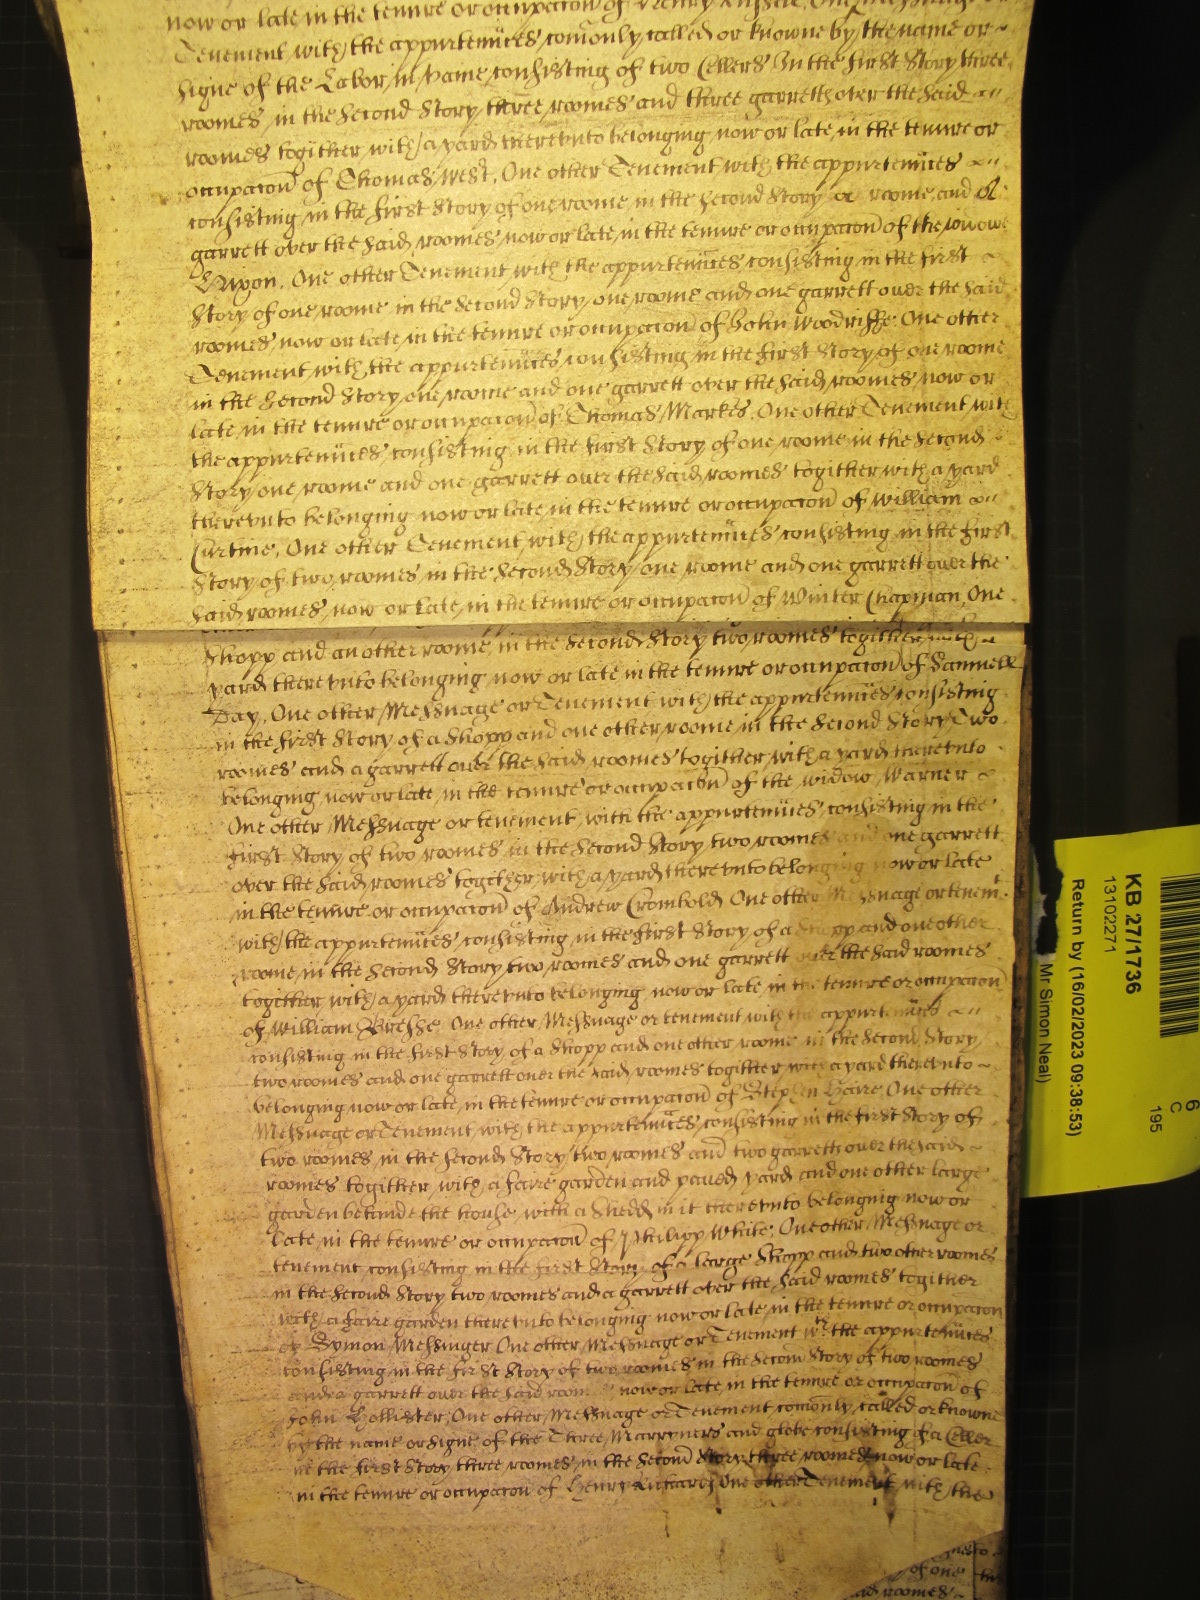 now or late in the tenure or occupacon of Henry
Tenement with the appurtenñces comonly called or knowne by the name or
signe of the Labor in vaine consisting of two Cellers In the first Story three
roomes in the second Story three roomes and three garretts over the said
roomes togither with a yard therevnto belonging now or late in the tenure or
occupacon of Thomas West, One other Tenement with the appurtenñces
consisting in the first Story of one roome in the second Story a roome and A
garrett over the said roomes now or late in the tenure or occupacon of the widowe
Nixon, One other Tenement with the appurtenñces consisting in the first
Story of one roome in the second Story one roome and one garrett over the said
roomes now or late in the tenure or occupacon of John Woodriffe One other
Tenement with the appurtenñces consisting in the first Story of one roome
in the second Story one roome and one garrett over the said roomes now or
late in the tenure or occupacon of Thomas Markes, One other Tenement with
the appurtenñces consisting in the first Story of one roome in the second
Story one roome and one garrett over the said roomes togither with a yard
therevnto belonging now or late in the tenure or occupacon of William
Curtine, One other Tenement with the appurtenñces consisting in the first
Story of two roomes in the second Story one roome and one garrett over the
said roomes now or late in the tenure or occupacon of Winter Chapman, One
Shopp and an other roome in the second Story two roomes togither with
yard therevnto belonging now or late in the tenure or occupacon of Samuell
Day, One other Messuage or Tenement with the appurtenñces consisting
in the first Story of a Shopp and one other roome in the second Story Two
roomes and a garrett over the said roomes togither with a yard therevnto
belonging now or late in the tenure or occupacon of the widow Warner
One other Messuage or tenement with the appurtenñces consisting in the
first Story of two roomes in the second Story two roomes and one garrett
over the said roomes together with a yard therevnto belonging now or late
in the tenure or occupacon of Andrew Crombold One other Messuage or tenemt
with the appurtenñces consisting in the first Story of a Shopp and one other
roome in the second Story two roomes and one garrett over the said roomes
togither with a yard therevnto belonging now or late in the tenure or occupacon
of William Bresse One other Messuage or tenement with the appurtenñces
consisting in the first Story of a Shopp and one other roome in the second Story
two roomes and one garrett over the said roomes togither with a yard therevnto
belonging now or late in the tenure or occupacon of Stephen Haire One other
Messuage or Tenement with the appurtenñces consisting in the first Story of
two roomes in the second Story two roomes and two garretts over the said
roomes togither with a faire garden and paued yard and one other large
garden behinde the house with a Shedd in it therevnto belonging now or
late in the tenure or occupacon of Philipp White, One other Messuage or
tenement consisting in the first Story of a large Shopp and two other roomes
in the second Story two roomes and a garrett over the said roomes togither
with a faire garden therevnto belonging now or late in the tenure or occupacon
of Symon Messinger One other Messuage or Tenement wth the appurtenñces
consisting in the first Story of two roomes in the second Story of two roomes
and a garrett over the said roomes now or late in the tenure or occupacon of
John Hollister, One other Messuage or Tenement comonly called or knowne
by the name or signe of the Three Marryners and globe consisting of a Celler
in the first Story three roomes in the second Story three roomes now or late
in the tenure or occupacon of Henry One other Tenement with the
of one
roomes
KB 27/1736
13102271
Return by (16/02/2023 09:38:53)
Mr Simon Neal)
6
C
195